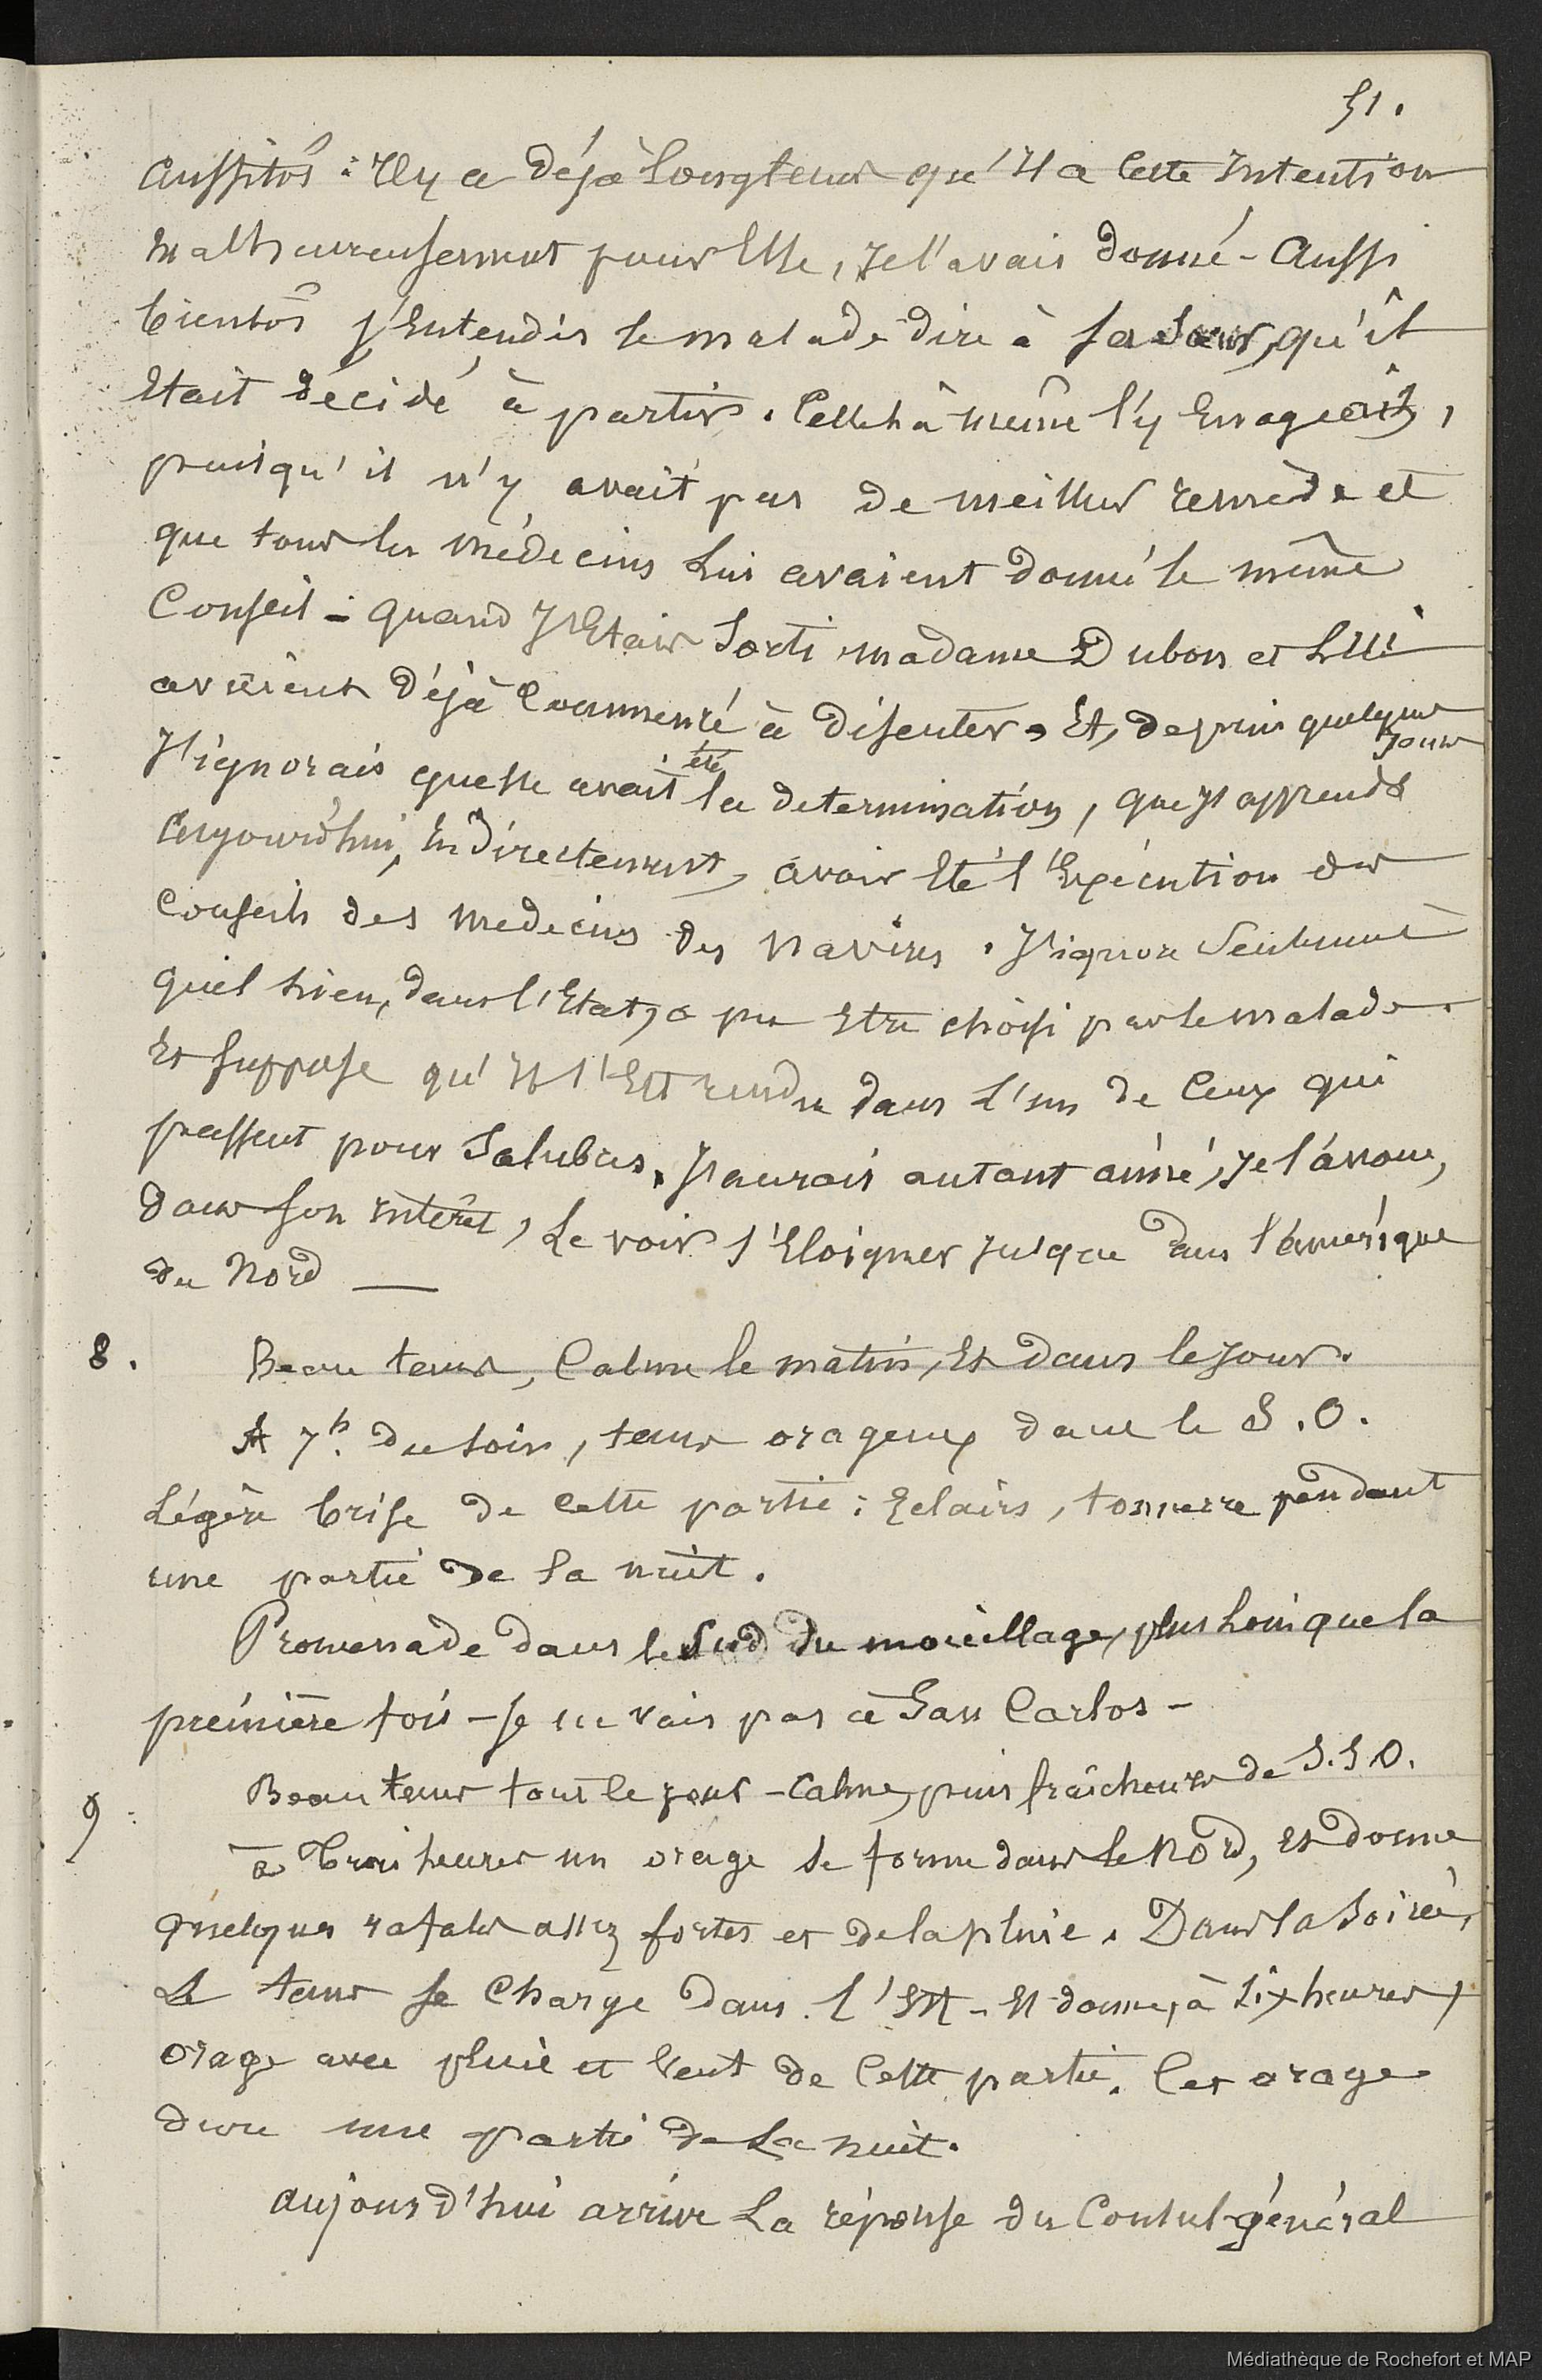 51.
aussitôt : Il y a déjà longtems qu'il a cette intention
malheureusement pour Elle, je l'avais donné - Aussi
bientôt j'Entendis le malade dire à sa sœur, qu'il
Etait décidé à partir. Celle-là même l'y Engageait,
puisqu'il n'y avait pas de meilleur remède et
que tous les médecins lui avaient donné le même
Conseil - quand J'Etais sorti madame Dubois et Lui
avaient déjà Commencé à discuter. Et, depuis quelques
jours
J'ignorais quelle avait été la determination, que J'apprends
Aujourd'hui, Indirectement, avoir Eté l'Exécution des
Conseils des medecins des navires. J'ignore Seulement
quel lieu, dans l'Etat, a pu Etre choisi par le malade.
Et suppose qu'Il s'Est rendu dans l'un de Ceux qui
passent pour Salubres. J'aurais autant aimé, je l'avoue,
dans son intérêt, Le voir s'Eloigner jusque dans l'amérique
du Nord —
8. Beau tems, Calme le matin, Et dans le jour.
A 7h. du soir, tems orageux dans le S.O.
Légère brise de cette partie : Eclairs, tonnerre pendant
une partie de la nuit.
Promenade dans le Sud du mouillage, plus loin que la
première fois - Je ne vais pas à San Carlos -
9 : Beau tems tout le jour - Calme, puis fraîcheurs de S.S.O.
à trois heures un orage se forme dans le Nord, Et donne
quelques rafales assez fortes et de la pluie. Dans la Soirée,
Le tems se Charge dans l'Est - Il donne, à six heures,
orage avec pluie et Vent de Cette partie. Cet orage
dure une partie de La nuit.
aujourd'hui arrive La réponse du Consul-général
Médiathèque de Rochefort et MAP